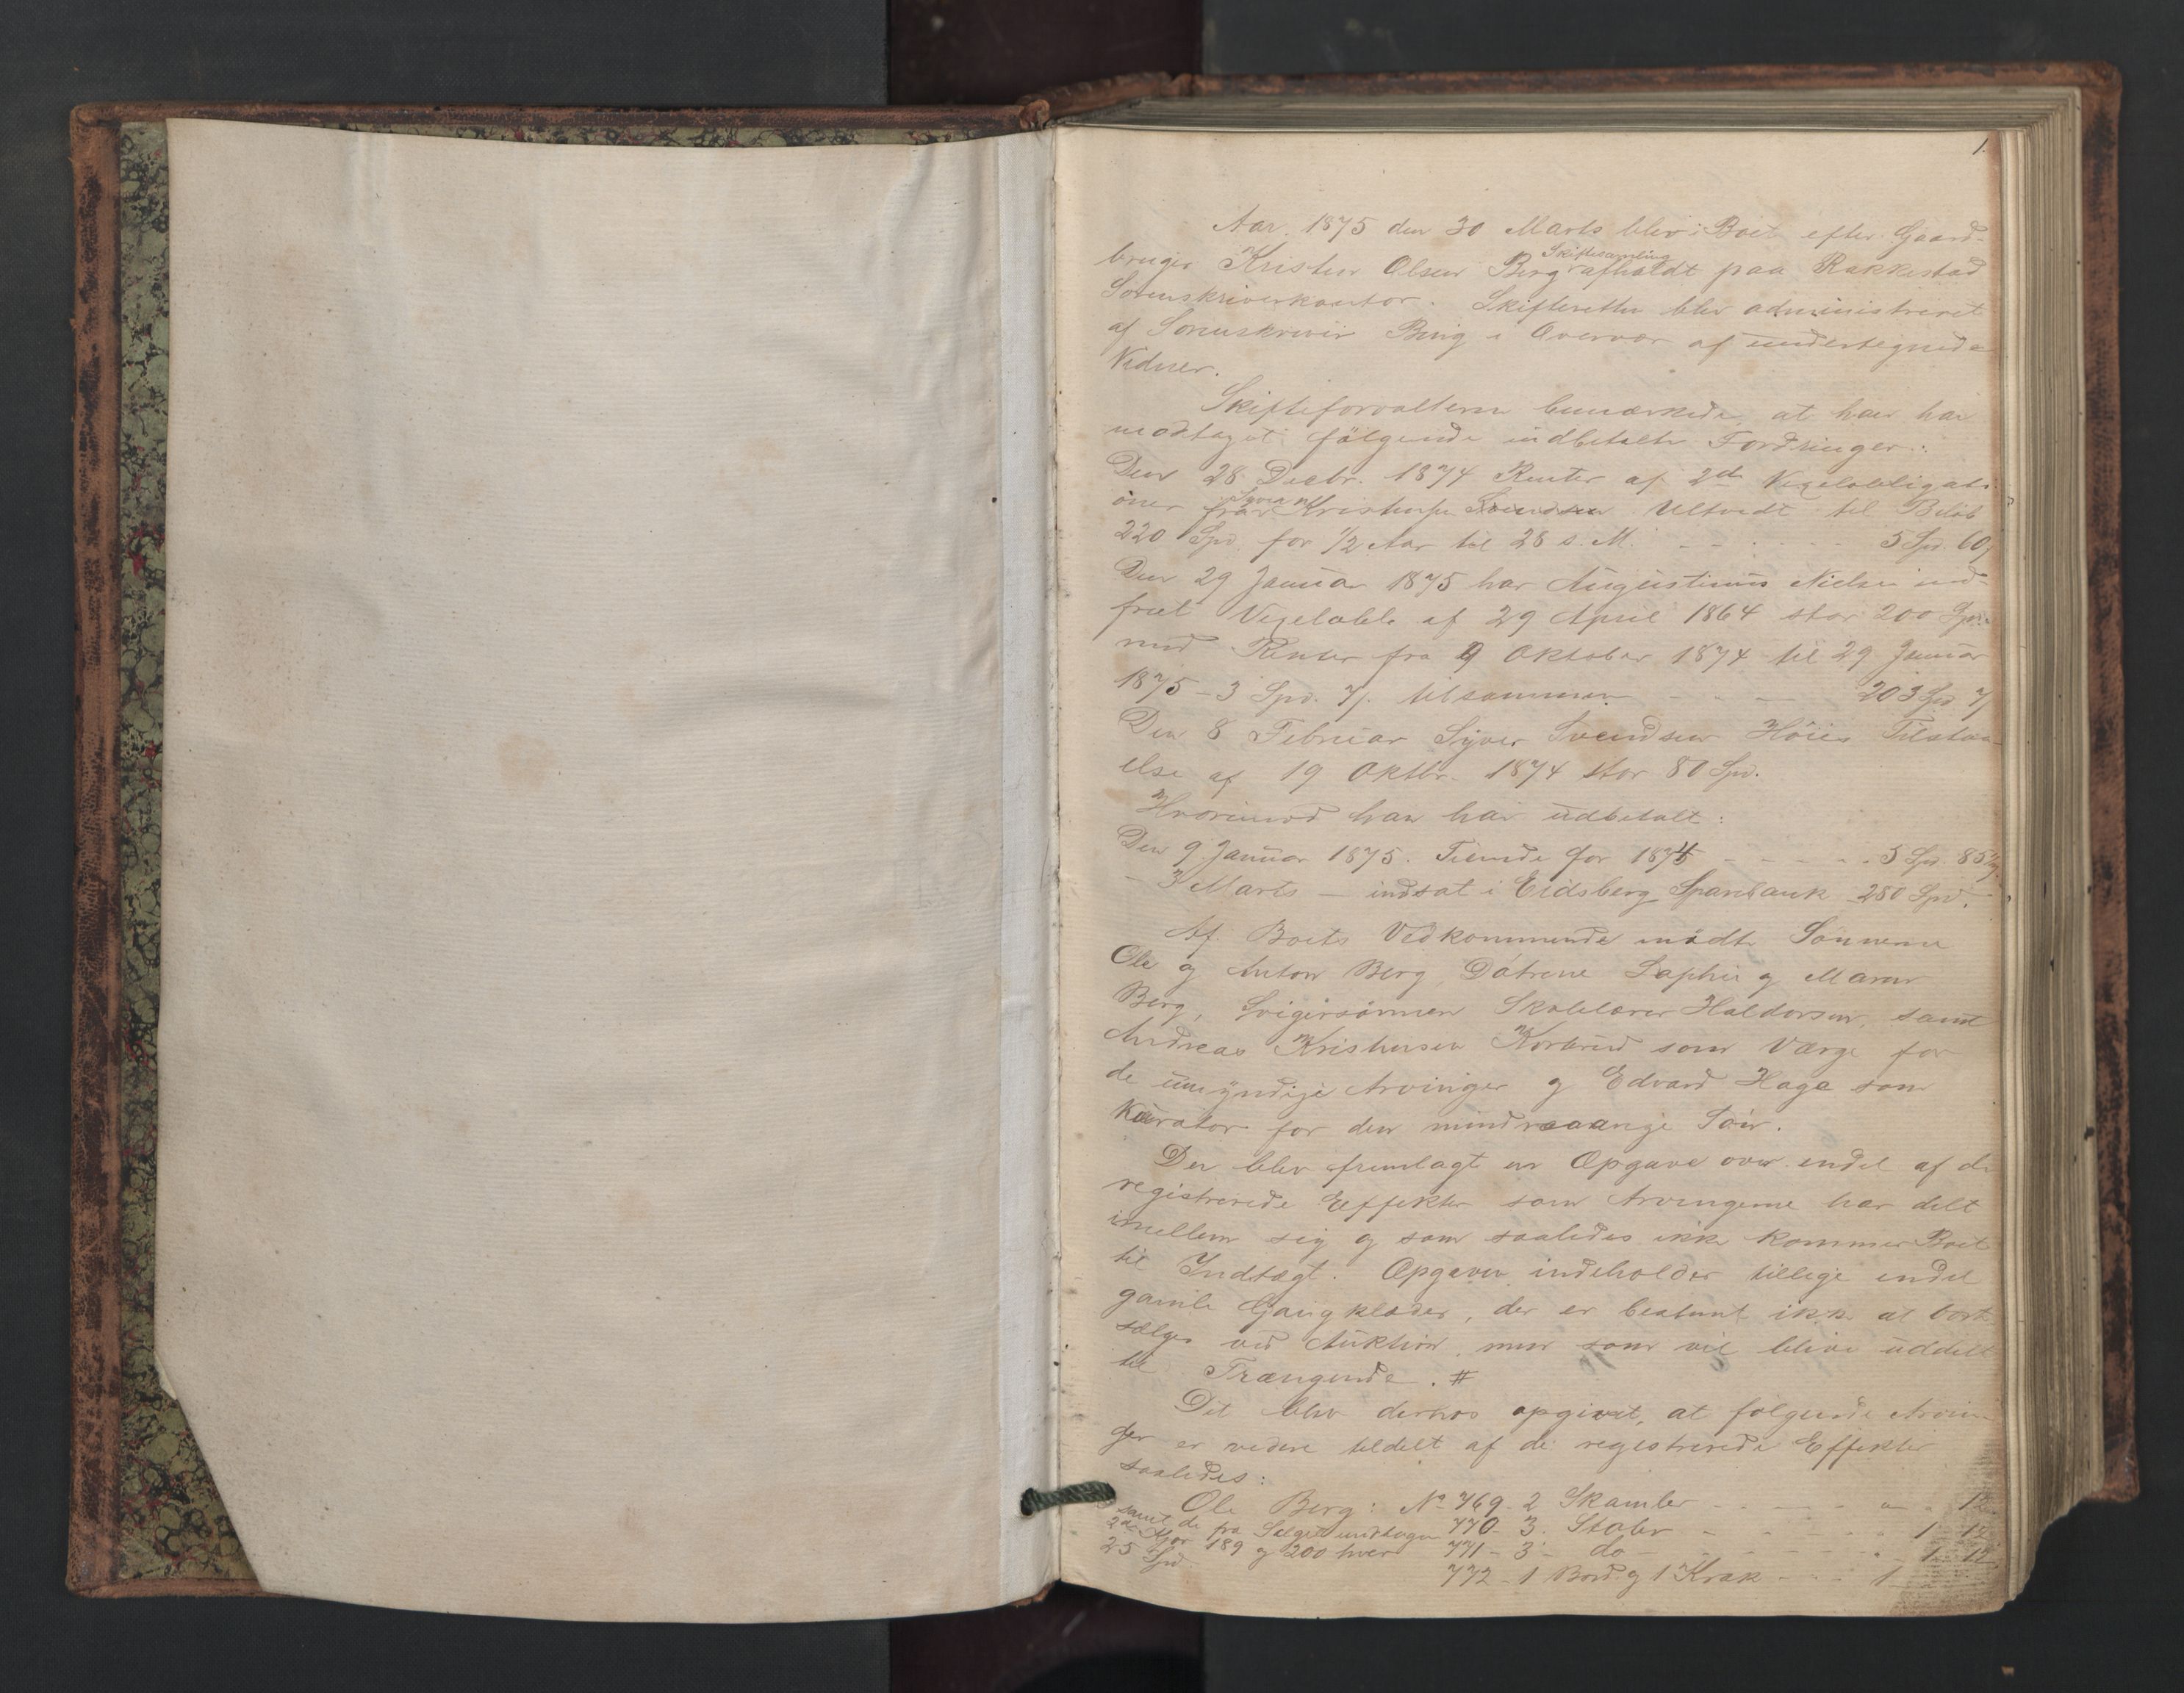 1.
Aar 1875 den 30 Marts blev i Boet efter Gaard-
bruger Kristen Olsen Berg Skiftesamling afholdt paa Rakkestad
Sorenskriverkontor. Skifteretten blev administreret
af Sorenskriver Bing i Overvær af undertegnede
Vidner.
Skifteforvalteren bemærkede, at han har
modtaget følgende indbetalte Fordringer:
Den 28 Decbr. 1874 Renter af 2de Vexelobligati-
oner fra Kristensen Svendsen Ultvedt til Beløb
220 Spd. for 1/2 Aar til 28 s. M. - - - 5 Spd. 60
Den 29 Januar 1875 har Augustinus Nielsen ind-
friet Vexelobl. af 29 April 1864 stor 200 Spd.
med Renter fra 9 Oktober 1874 til 29 Januar
1875 - 3 Spd. 7 tilsammen - - - 203 Spd 7
Den 8 Februar Syver Svendsen Høies Tilstaa-
else af 19 Oktbr. 1874 stor 80 Spd.
Hvorimod han har udbetalt:
Den 9 Januar 1875. Tiende for 1874 - - - - 5 Spd. 85
- 3 Marts - indsat i Eidsberg Sparebank 280 Spd.
Af Boets Vedkommende mødte Sønnerne
Ole og Anton Berg, Døtrene Sophie og Maren
Berg, Svigersønnen Skolelærer Haldorsen, samt
Andreas Kristensen Korterud som Værge for
de umyndige Arvinger og Edvard Haga som
Kurator for den mindreaarige Søn.
Der blev fremlagt en Opgave over endel af de
registrerede Effekter som Arvingerne har delt
imellem sig og som saaledes ikke kommer Boet
til Indtægt. Opgaven indeholder tillige endel
gamle Gangklæder, der er bestemt ikke at bort-
sælges ved Auktion, men som vil blive uddelt
til Trængende. #
Det blev derhos opgivet, at følgende Arvin-
ger er videre tildelt af de registrerede Effekter
saaledes:
Ole Berg: No 769. 2 Skamler - - - - " - 12
samt de fra Salget undtagne 770 - 3. Stoler - - - - 1 - 12
2de No 189 og 200 hver 771 - 3 - do - - - - 1 - 12
25 Spd. 772 - 1 Bord og 1 Krak - - - 1